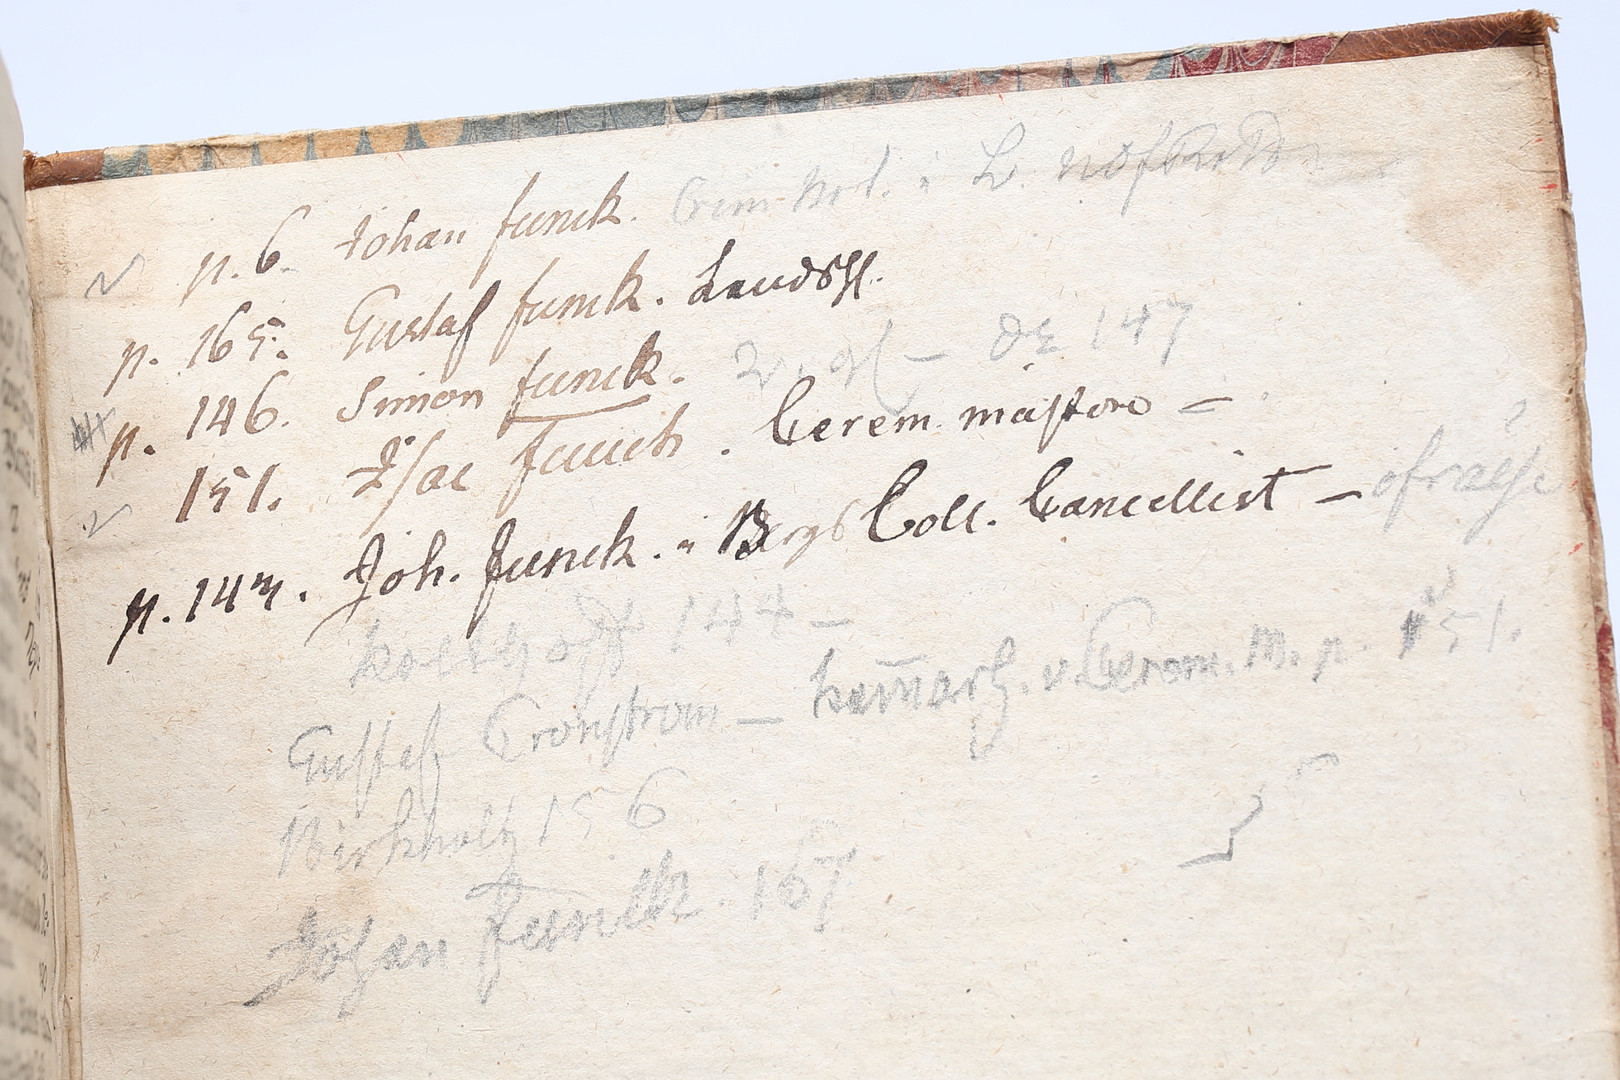 p. 6. Johan funck.
p. 165. Gustaf funck. Landsh.
p. 146. Simon funck. de 147
151. Isac funck. Cerem. mästare –
p. 147. Joh. Funck. i Bergs Coll. Cancellist – ofrälse
Kolthoff 144 –
Gustaf Cronstrom – v. Cerem. M. p. 151.
Birkholtz 156
Johan Funck. 167